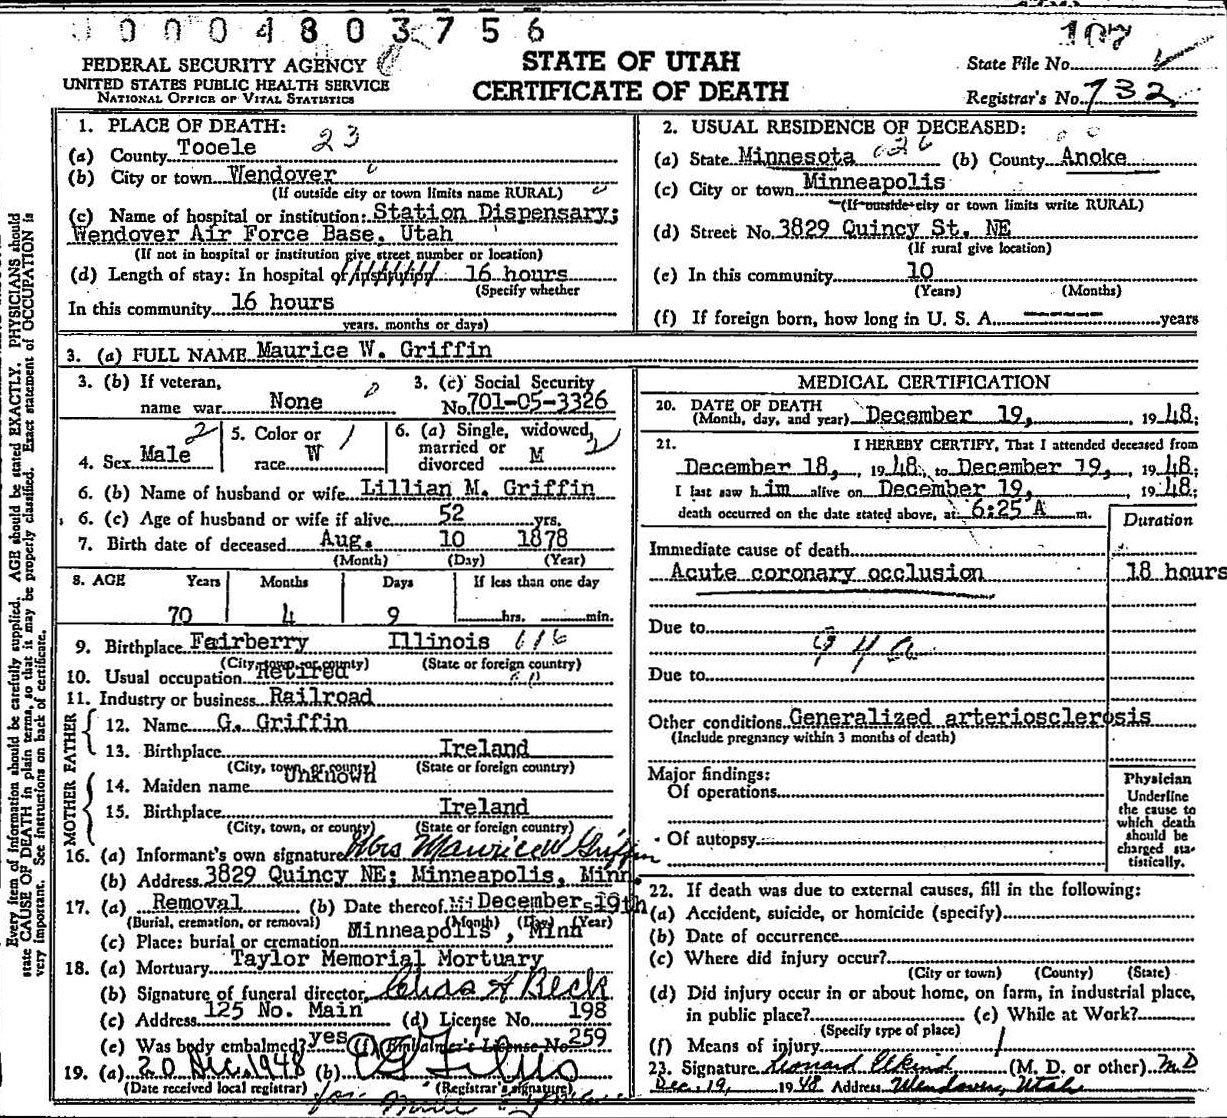 0 0 0 0 4 8 0 3 7 5 6
FEDERAL SECURITY AGENCY
UNITED STATES PUBLIC HEALTH SERVICE
NATIONAL OFFICE OF VITAL STATISTICS
STATE OF UTAH
CERTIFICATE OF DEATH
State File No.
Registrar's No. 732
Every item of information should be carefully supplied. AGE should be stated EXACTLY. PHYSICIANS should
state CAUSE OF DEATH in plain terms, so that it may be properly classified. Exact statement of OCCUPATION is
very important. See instructions on back of certificate.
1. PLACE OF DEATH:
(a) County Tooele 23
(b) City or town Wendover
(If outside city or town limits name RURAL)
(c) Name of hospital or institution: Station Dispensary;
Wendover Air Force Base, Utah
(If not in hospital or institution give street number or location)
(d) Length of stay: In hospital or institution 16 hours
(Specify whether
In this community 16 hours
years, months or days)
2. USUAL RESIDENCE OF DECEASED:
(a) State Minnesota 026 (b) County Anoke
(c) City or town Minneapolis
(If outside city or town limits write RURAL)
(d) Street No. 3829 Quincy St. NE
(If rural give location)
(e) In this community 10
(Years) (Months)
(f) If foreign born, how long in U. S. A. years
3. (a) FULL NAME Maurice W. Griffin
3. (b) If veteran,
name war None
3. (c) Social Security
No. 701-05-3326
4. Sex Male
5. Color or
race W
6. (a) Single, widowed,
married or
divorced M
6. (b) Name of husband or wife Lillian M. Griffin
6. (c) Age of husband or wife if alive 52 yrs.
7. Birth date of deceased Aug. 10 1878
(Month) (Day) (Year)
8. AGE Years Months Days If less than one day
70 4 9 hrs. min.
9. Birthplace Fairberry Illinois 116
(City, town, or county) (State or foreign country)
10. Usual occupation Retired
11. Industry or business Railroad
FATHER
12. Name G. Griffin
13. Birthplace Ireland
(City, town, or county) (State or foreign country)
MOTHER
14. Maiden name Unknown
15. Birthplace Ireland
(City, town, or county) (State or foreign country)
16. (a) Informant's own signature Mrs Maurice W Griffin
(b) Address 3829 Quincy NE; Minneapolis, Minn.
17. (a) Removal (b) Date thereof December 19th
(Burial, cremation, or removal) (Month) (Day) (Year)
(c) Place: burial or cremation Minneapolis, Minn
18. (a) Mortuary Taylor Memorial Mortuary
(b) Signature of funeral director Chas A Beck
(c) Address 125 No. Main (d) License No. 198
(e) Was body embalmed? yes (f) Embalmer's License No. 259
19. (a) 20 Dec. 1948 (b)
(Date received local registrar) (Registrar's signature)
MEDICAL CERTIFICATION
20. DATE OF DEATH
(Month, day, and year) December 19, 1948;
21. I HEREBY CERTIFY, That I attended deceased from
December 18, 1948, to December 19, 1948;
I last saw him alive on December 19, 1948;
death occurred on the date stated above, at 6:25 A m.
Duration
Immediate cause of death
Acute coronary occlusion 18 hours
Due to
94a
Due to
Other conditions Generalized arteriosclerosis
(Include pregnancy within 3 months of death)
Major findings:
Of operations
Of autopsy
Physician
Underline
the cause to
which death
should be
charged sta-
tistically.
22. If death was due to external causes, fill in the following:
(a) Accident, suicide, or homicide (specify)
(b) Date of occurrence
(c) Where did injury occur?
(City or town) (County) (State)
(d) Did injury occur in or about home, on farm, in industrial place,
in public place? (e) While at Work?
(Specify type of place)
(f) Means of injury
23. Signature Leonard Elkind (M. D. or other) MD
Dec. 19, 1948 Address Wendover, Utah